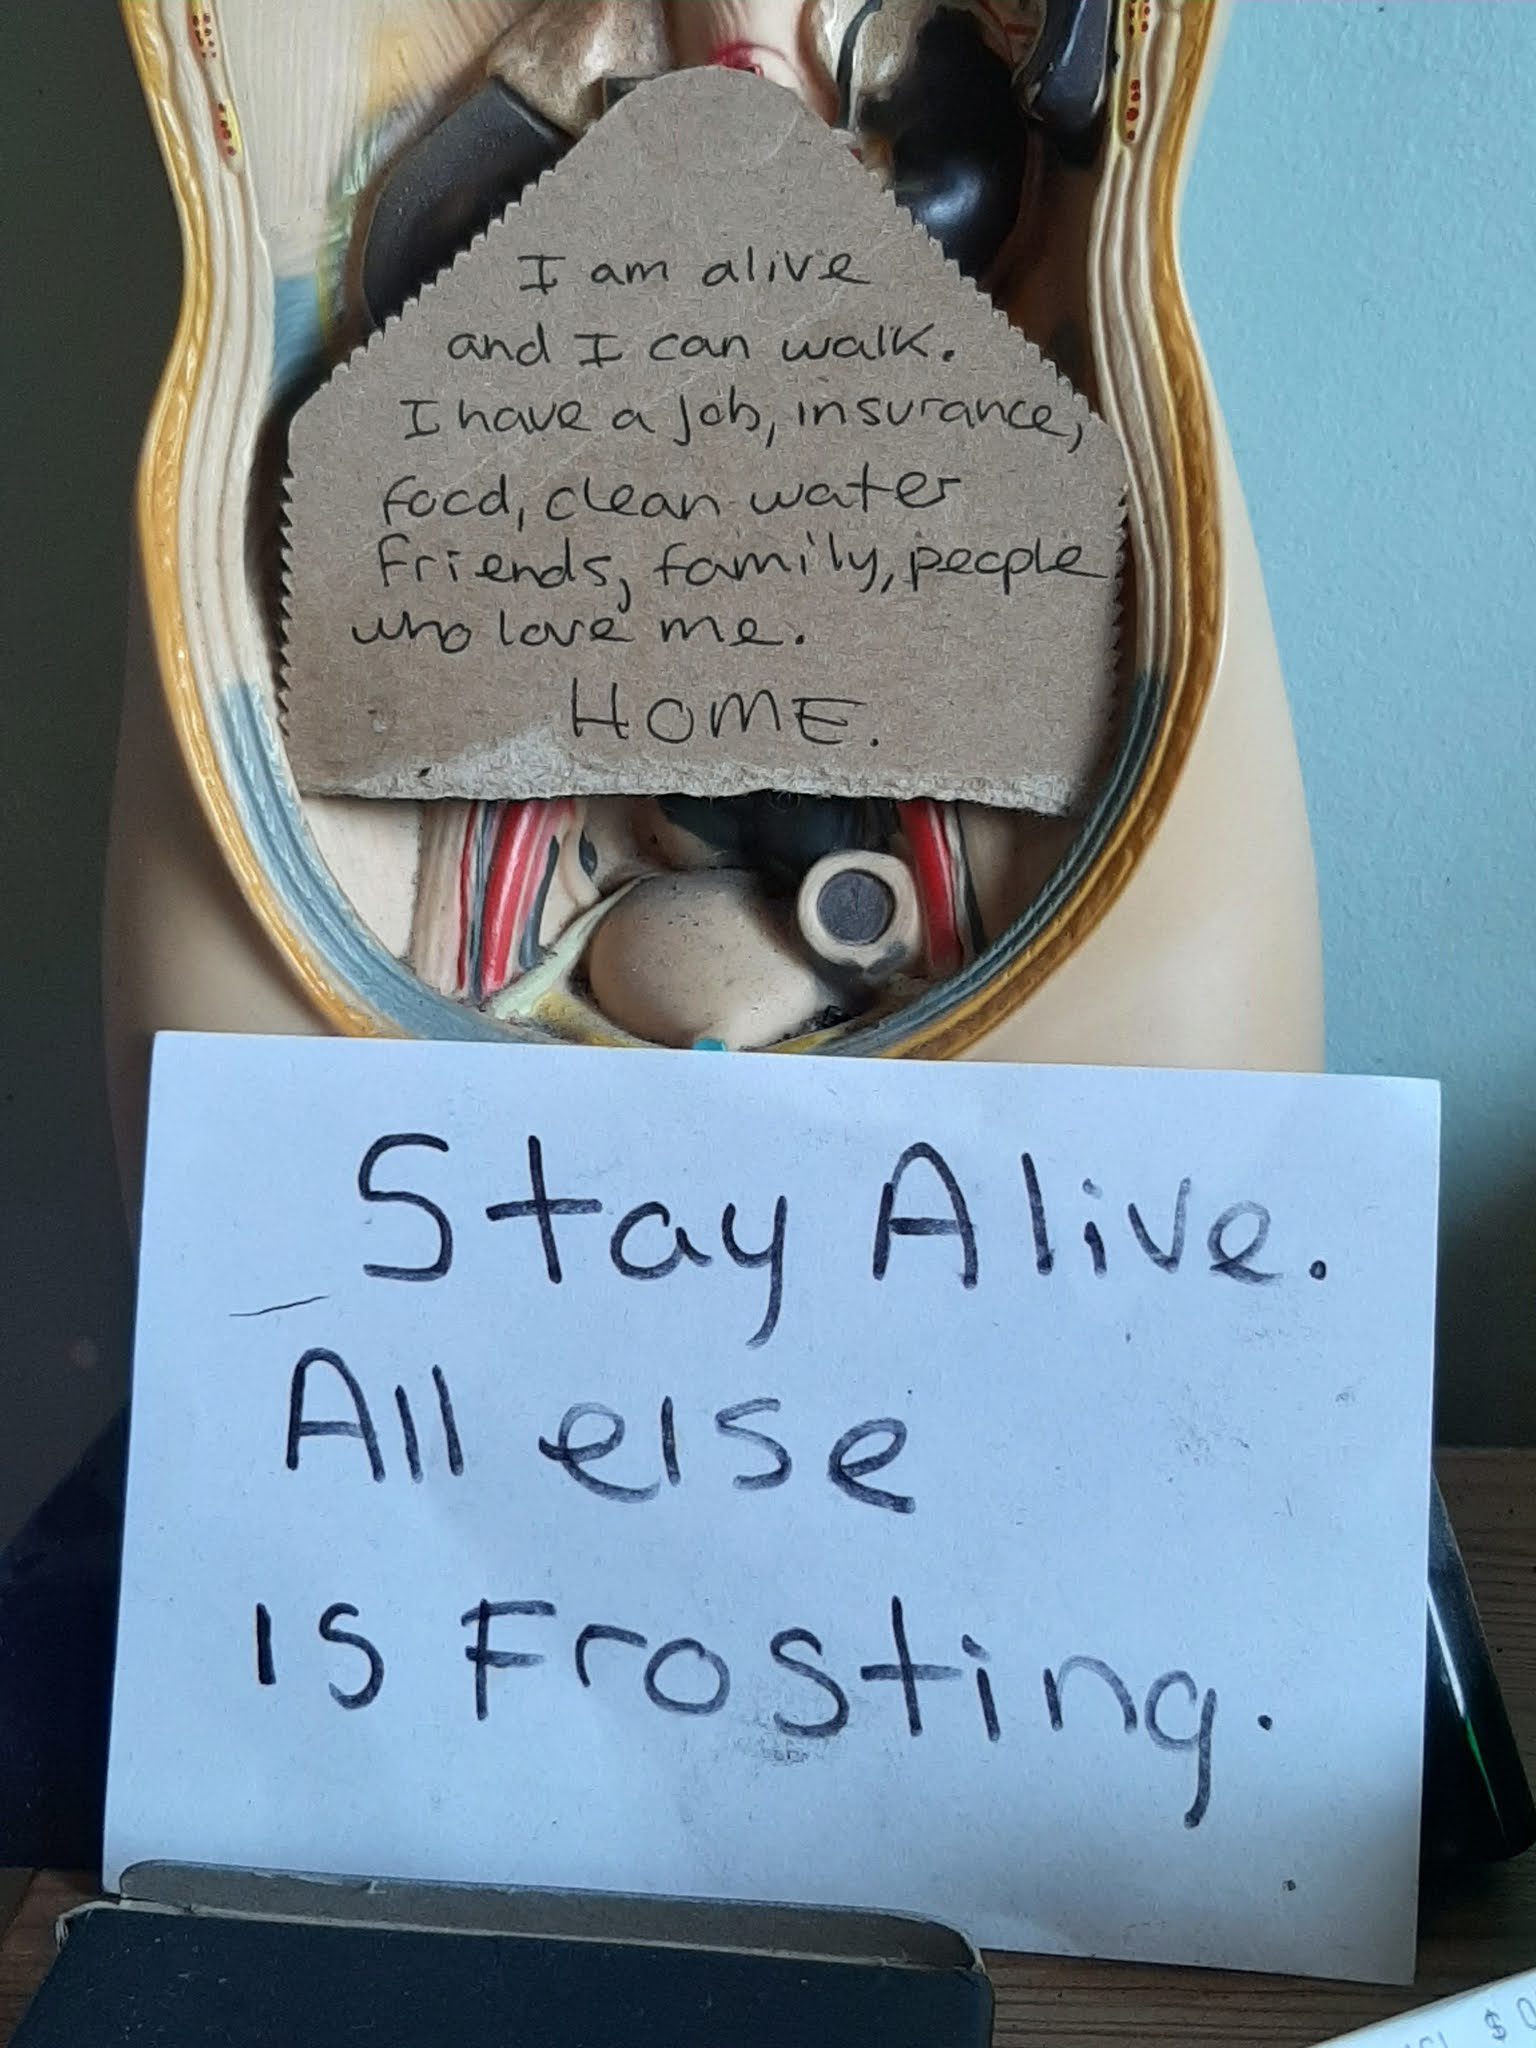 I am alive
and I can walk.
I have a job, insurance,
food, clean water
friends, family, people
who love me.
HOME.
Stay Alive.
All else
is Frosting.
$0